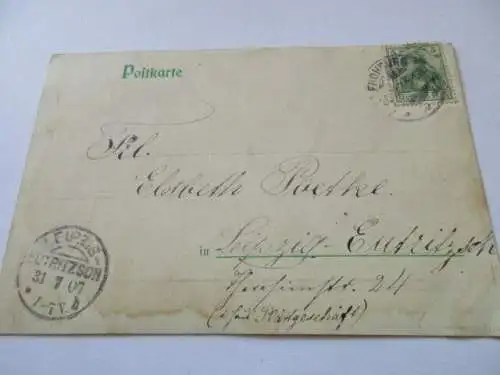 Postkarte
FROHBURG
Frl.
Elsbeth Poetke.
in Leipzig-Eutritzsch
24
LEIPZIG-
EUTRITZSCH
31 7 07